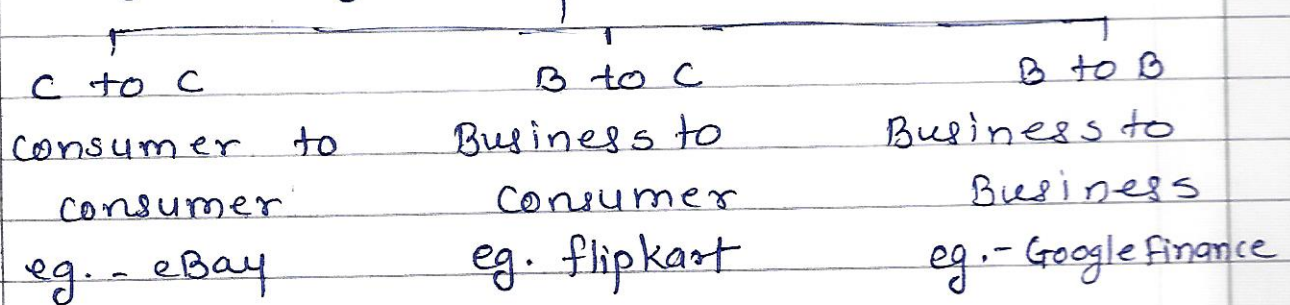 C to C
consumer to
consumer
eg. - eBay
B to C
Business to
consumer
eg. flipkart
B to B
Business to
Business
eg.- Google Finance